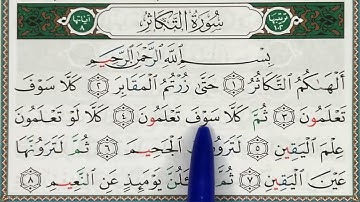 آيَاتُهَا ٨
سُورَةُ التَّكَاثُرِ
تَرْتِيبُهَا ١٠٢
بِسْمِ اللَّهِ الرَّحْمَٰنِ الرَّحِيمِ
أَلْهَاكُمُ التَّكَاثُرُ ١ حَتَّىٰ زُرْتُمُ الْمَقَابِرَ ٢ كَلَّا سَوْفَ
تَعْلَمُونَ ٣ ثُمَّ كَلَّا سَوْفَ تَعْلَمُونَ ٤ كَلَّا لَوْ تَعْلَمُونَ
عِلْمَ الْيَقِينِ ٥ لَتَرَوُنَّ الْجَحِيمَ ٦ ثُمَّ لَتَرَوُنَّهَا
عَيْنَ الْيَقِينِ ٧ ثُمَّ يَوْمَئِذٍ عَنِ النَّعِيمِ ٨